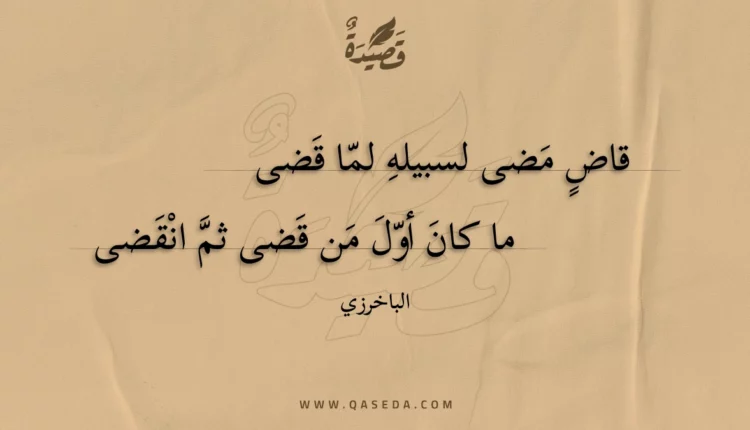 قَصِيْدَةٌ
قاضٍ مَضى لسبيلهِ لمّا قَضى
ما كانَ أوّلَ مَن قَضى ثمَّ انْقَضى
الباخرزي
WWW.QASEDA.COM